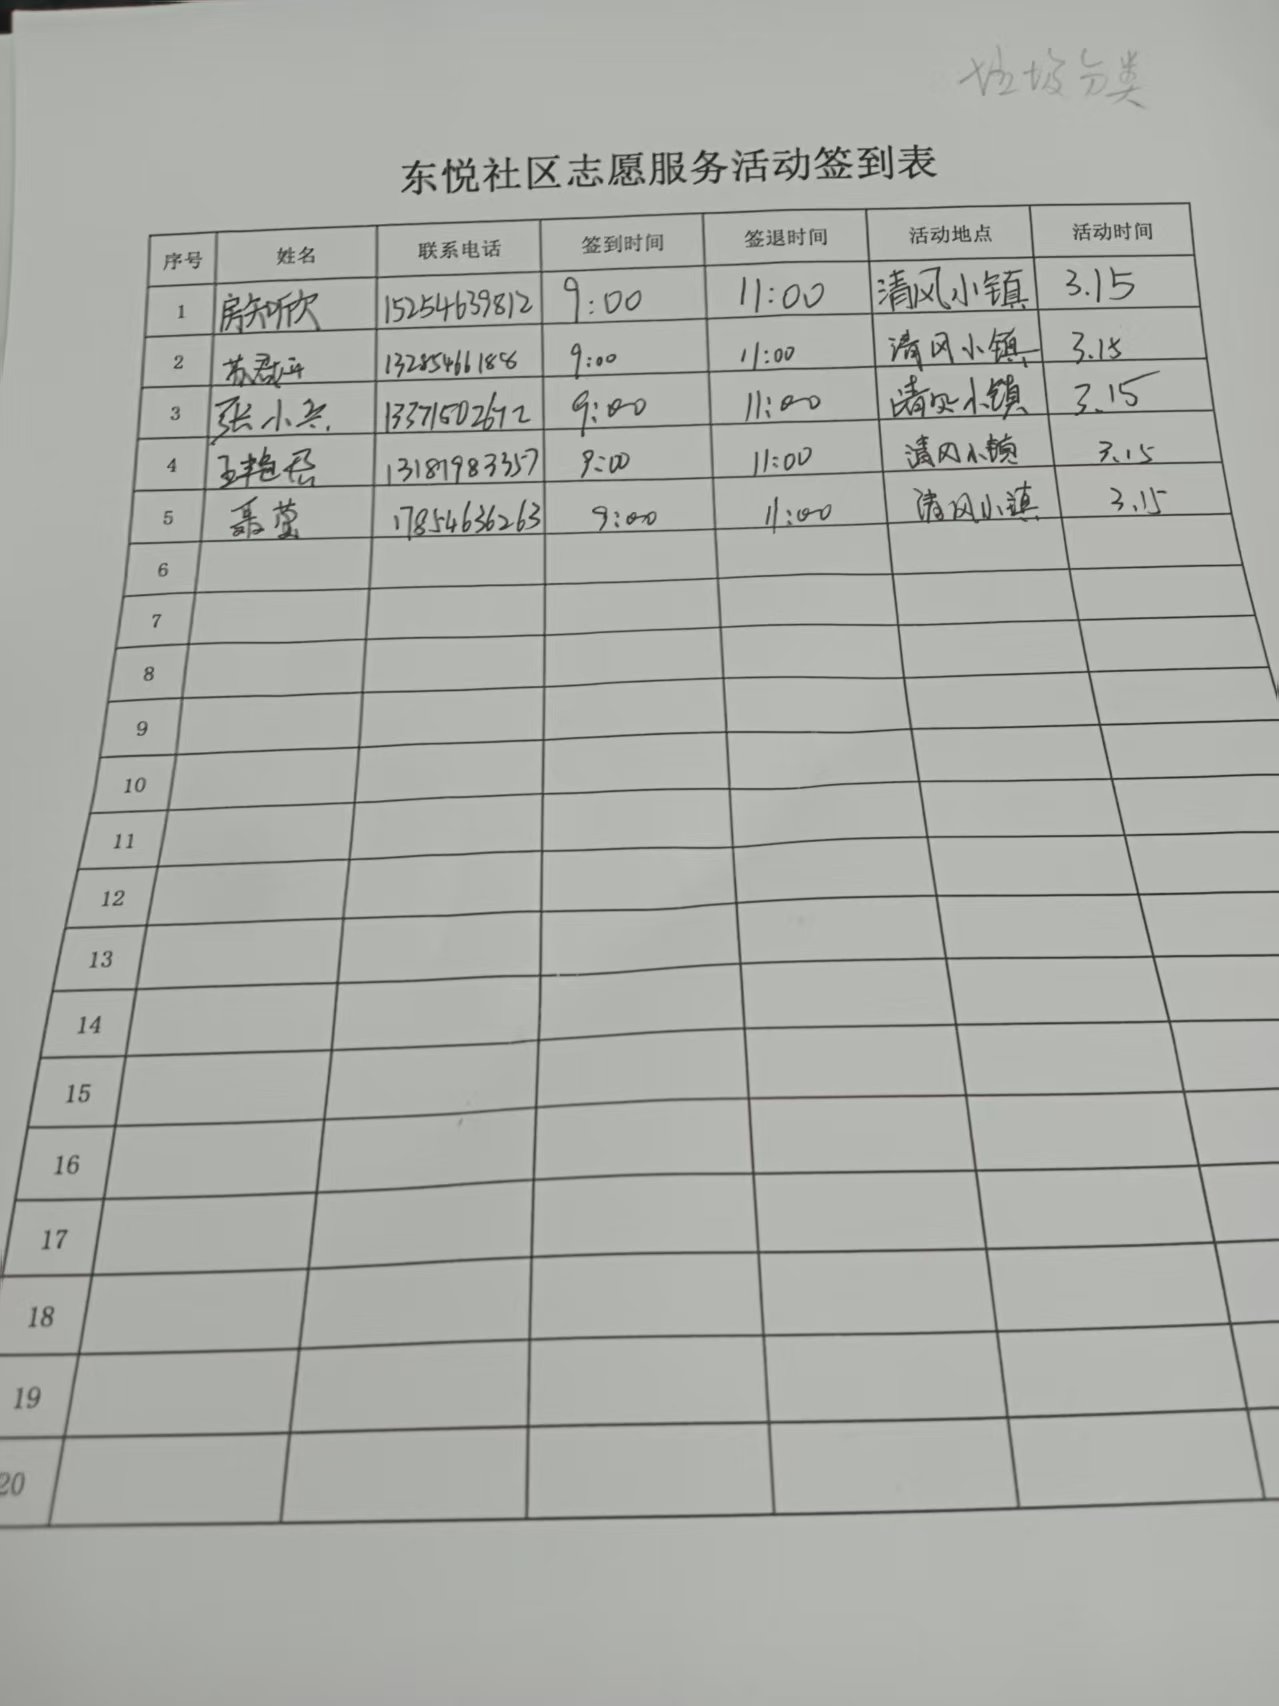 垃圾分类
东悦社区志愿服务活动签到表
序号 姓名 联系电话 签到时间 签退时间 活动地点 活动时间
1 房知昕欠 15254639812 9:00 11:00 清风小镇 3.15
2 苏君平 13285466188 9:00 11:00 清风小镇 3.15
3 张小兵 13371502672 9:00 11:00 清风小镇 3.15
4 王艳君 13181983357 9:00 11:00 清风小镇 3.15
5 聂莹 17854636263 9:00 11:00 清风小镇 3.15
6
7
8
9
10
11
12
13
14
15
16
17
18
19
20